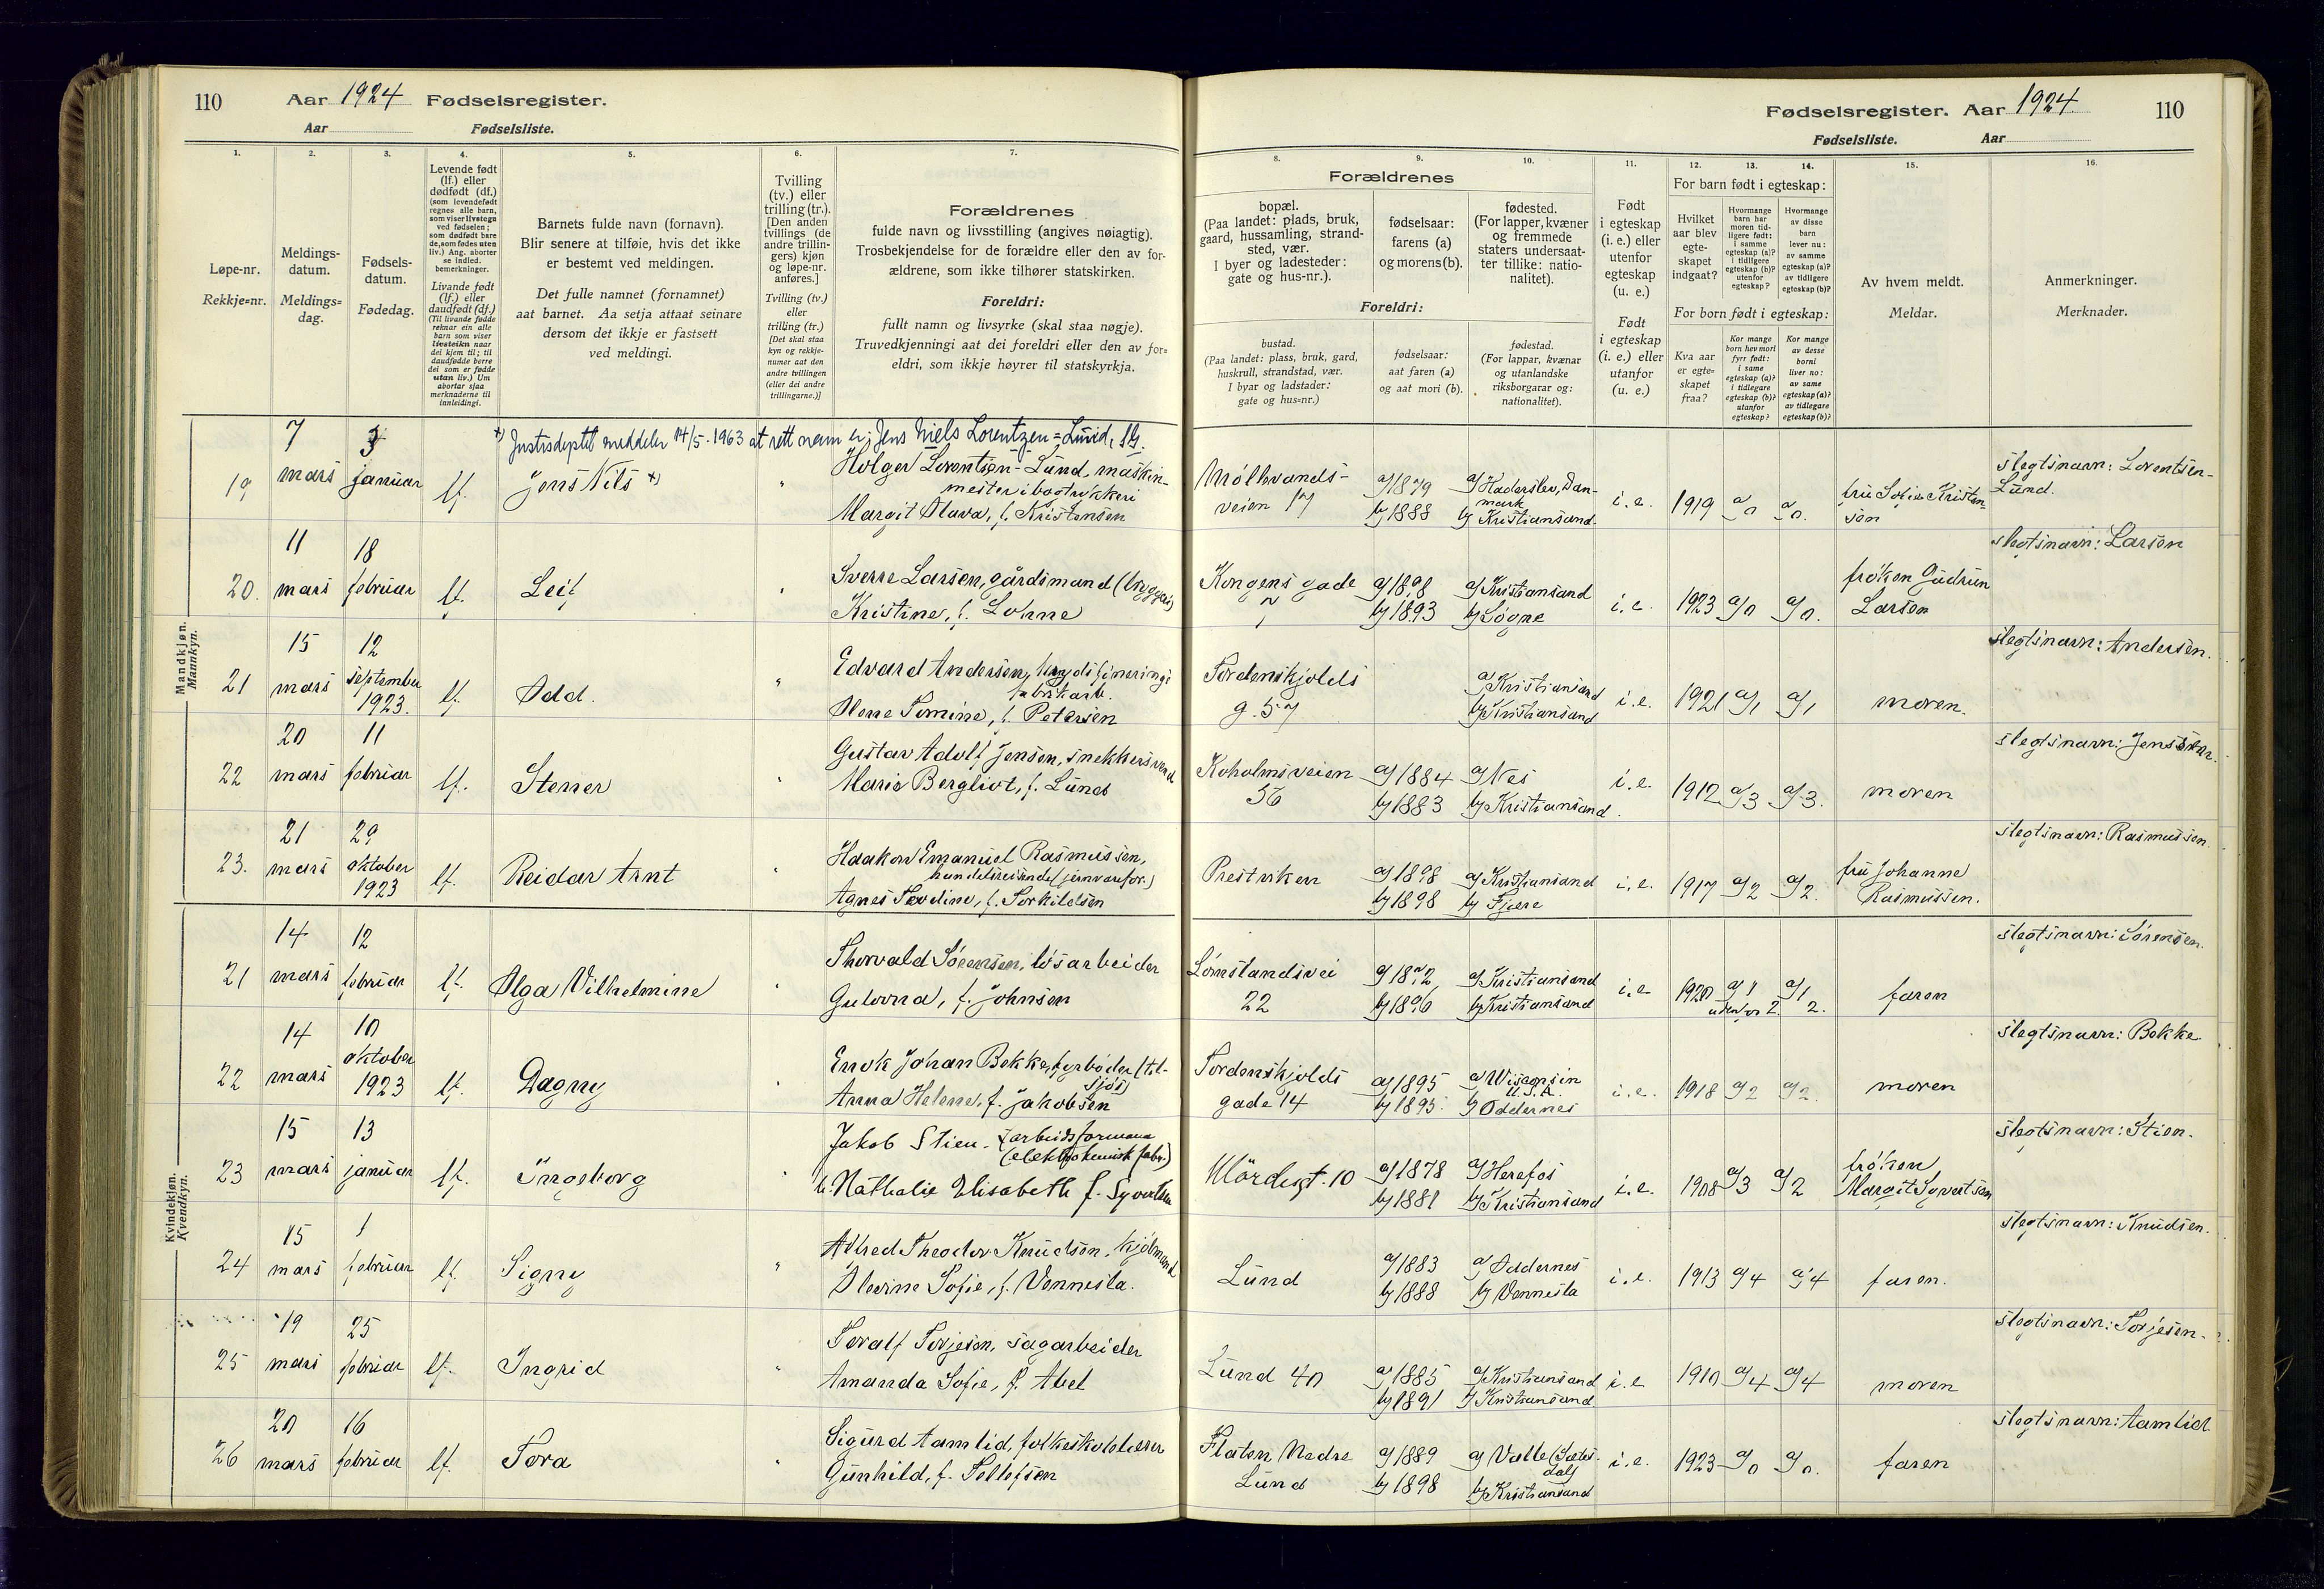 110 Aar 1924 Fødselsregister.
Aar Fødselsliste.
1. 2. 3. 4. 5. 6. 7.
Løpe-nr.
Rekkje=nr.
Meldings-
datum.
Meldings=
dag.
Fødsels-
datum.
Fødedag.
Levende født
(lf.) eller
dødfødt (df.)
(som levendefødt
regnes alle barn,
som viser livstegn
ved fødselen;
som dødfødt bare
de, som fødes uten
liv.) Ang. aborter
se indled.
bemerkninger.
Livande født
(lf.) eller
daudfødt (df.)
(Til livande fødde
reknar ein alle
barn som viser
livsteikn naar
dei kjem til; til
daudfødde berre
dei som er fødde
utan liv.) Um
abortar sjaa
merknaderne til
innleidingi.
Barnets fulde navn (fornavn).
Blir senere at tilføie, hvis det ikke
er bestemt ved meldingen.
Det fulle namnet (fornamnet)
aat barnet. Aa setja attaat seinare
dersom det ikkje er fastsett
ved meldingi.
Tvilling
(tv.) eller
trilling (tr.).
[Den anden
tvillings (de
andre trillin-
gers) kjøn
og løpe-nr.
anføres.]
Tvilling (tv.)
eller
trilling (tr.)
[Det skal staa
kyn og rekkje-
numer aat den
andre tvillingen
(eller dei andre
trillingarne.)]
Forældrenes
fulde navn og livsstilling (angives nøiagtig).
Trosbekjendelse for de forældre eller den av for-
ældrene, som ikke tilhører statskirken.
Foreldri:
fullt namn og livsyrke (skal staa nøgje).
Truvedkjenningi aat dei foreldri eller den av for=
eldri, som ikkje høyrer til statskyrkja.
Mandkjøn.
Mannkyn.
x) Justisdeptet meddeler 14/5-1963 at rett navn er; Jens Niels Lorentzen=Lund,
19 7 mars 3 januar lf. Jens Nils x) "
Holger Lorentsen-Lund, maskin-
mester i bogtrykkeri
Margit Olava, f. Kristensen
20. 11 mars 18 februar lf. Leif "
Sverre Larsen, gårdsmand (bryggeri)
Kristine, f. Lohne
21 15 mars 12 september 1923. lf. Odd. "
Edvard Andersen,
fabrikarb.
Olene Tomine, f. Petersen
22 20 mars 11 februar lf. Stener "
Gustav Adolf Jensen, snekkersvend
Marie Bergliot, f. Lunds
23. 21 mars 29 oktober 1923 lf. Reidar Arnt "
Haakon Emanuel Rasmussen,
handelsreisende (jernvarefor.)
Agnes f. Torkildsen
Kvindekjøn.
Kvendkyn.
21 14 mars 12 februar lf. Olga Vilhelmine "
Thorvald Sørensen, løsarbeider
Gulovna, f. Johnsen
22 14 mars 10 oktober 1923 lf. Dagny "
Enok Johan Bekke, fyrbøder (til-
sjøs)
Anna Helene, f. Jakobsen
23 15 mars 13 januar lf. Ingeborg "
Jakob Stien. (arbeidsformann
(elektrokemisk fabr.)
Nathalie Elisabeth f. Syvertsen
24 15 mars 1 februar lf. Signy "
Alfred Theodor Knudsen, kjølmand
Olevine Sofie, f. Vennesla.
25 19 mars 25 februar lf. Ingrid "
Toralf Torjesen, sagarbeider
Amanda Sofie, f. Abel
26 20 mars 16 februar lf. Tora "
Sigurd Aamlid, folkeskolelærer
Gunhild, f. Tellefsen
Fødselsregister. Aar 1924. 110
Fødselsliste. Aar
8. 9. 10. 11. 12. 13. 14. 15. 16.
Forældrenes
bopæl.
(Paa landet: plads, bruk,
gaard, hussamling, strand-
sted, vær.
I byer og ladesteder:
gate og hus-nr.).
fødselsaar:
farens (a)
og morens (b).
fødested.
(For lapper, kvæner
og fremmede
staters undersaat-
ter tillike: natio-
nalitet).
Foreldri:
bustad.
(Paa landet: plass, bruk, gard,
huskrull, strandstad, vær.
I byar og ladstader:
gate og hus=nr.)
fødselsaar:
aat faren (a)
og aat mori (b).
fødestad.
(For lappar, kvænar
og utanlandske
riksborgarar og:
nationalitet).
Født
i egteskap
(i. e.) eller
utenfor
egteskap
(u. e.)
Født
i egteskap
(i. e.) eller
utanfor
(u. e.)
For barn født i egteskap:
Hvilket
aar blev
egte-
skapet
indgaat?
Hvormange
barn har
moren tid-
ligere født:
i samme
egteskap (a)?
i tidligere
egteskap (b)?
utenfor
egteskap?
Hvormange
av disse
barn
lever nu:
av samme
egteskap (a)?
av tidligere
egteskap (b)?
For born født i egteskap:
Kva aar
er egte=
skapet
fraa?
Kor mange
born hev mori
fyrr født:
i same
egteskap (a)?
i tidlegare
egteskap (b)?
utanfor
egteskap?
Kor mange
av desse
borni
liver no:
av same
egteskap (a)?
av tidlegare
egteskap (b)?
Av hvem meldt.
Meldar.
Anmerkninger.
Merknader.
veien 17 a) 1879 b) 1888 a) Haderslev, Dan-
mark b) Kristiansand. i.e. 1919 a/0 a/0. fru Sofie Kristen-
sen slegtsnavn: Lorentsen-
Lund.
Kongens gade
7 a) 1898 b) 1893 a) Kristiansand b) Søgne i.e. 1923 a/0 a/0. frøken Gudrun
Larsen slegtsnavn: Larsen
Tordenskjolds
g. 57 a) Kristiansand b) Kristiansand i.e. 1921 a/1 a/1 moren. slegtsnavn: Andersen.
Koholmsveien
56 a) 1884 b) 1883 a) Nes b) Kristiansand. i.e. 1912 a/3 a/3. moren slegtsnavn:
Prestviken a) 1898 b) 1898 a) Kristiansand b) Fjære i.e. 1917 a/2 a/2. fru Johanne
Rasmussen. slegtsnavn: Rasmussen
22 a) 1872 b) 1896 a) Kristiansand b) Kristiansand i.e. 1920 a/1 a/1
utenfor 2. 2. faren slegtsnavn: Sørensen.
Tordenskjolds
gade 14 a) 1895 b) 1895. a) Wisconsin
U.S.A. b) Oddernes i.e. 1918 a/2 a/2. moren slegtsnavn: Bekke.
10 a) 1878 b) 1881 a) Herefos b) Kristiansand i.e. 1908 a/3 a/2 frøken
Margit Syvertsen slegtsnavn: Stien.
Lund a) 1883 b) 1888 a) Oddernes b) Vennesla i.e. 1913 a/4 a/4 faren. slegtsnavn: Knudsen.
Lund 40 a) 1885 b) 1891 a) Kristiansand b) Kristiansand i.e. 1910 a/4 a/4 moren slegtsnavn: Torjesen.
Flaten Nedre
Lund a) 1889 b) 1898 a) Valle (Sætes-
dal) b) Kristiansand i.e. 1923 a/0 a/0. faren slegtsnavn: Aamlid